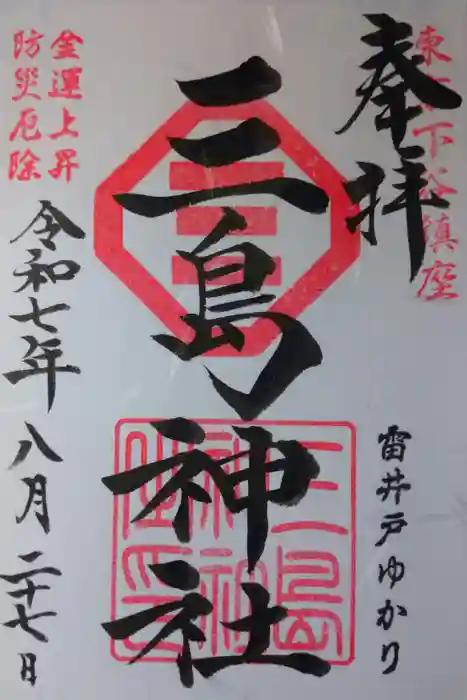 奉拝
東京下谷鎮座
雷井戸ゆかり
三島神社
三島神社
金運上昇
防災厄除
令和七年八月二十七日